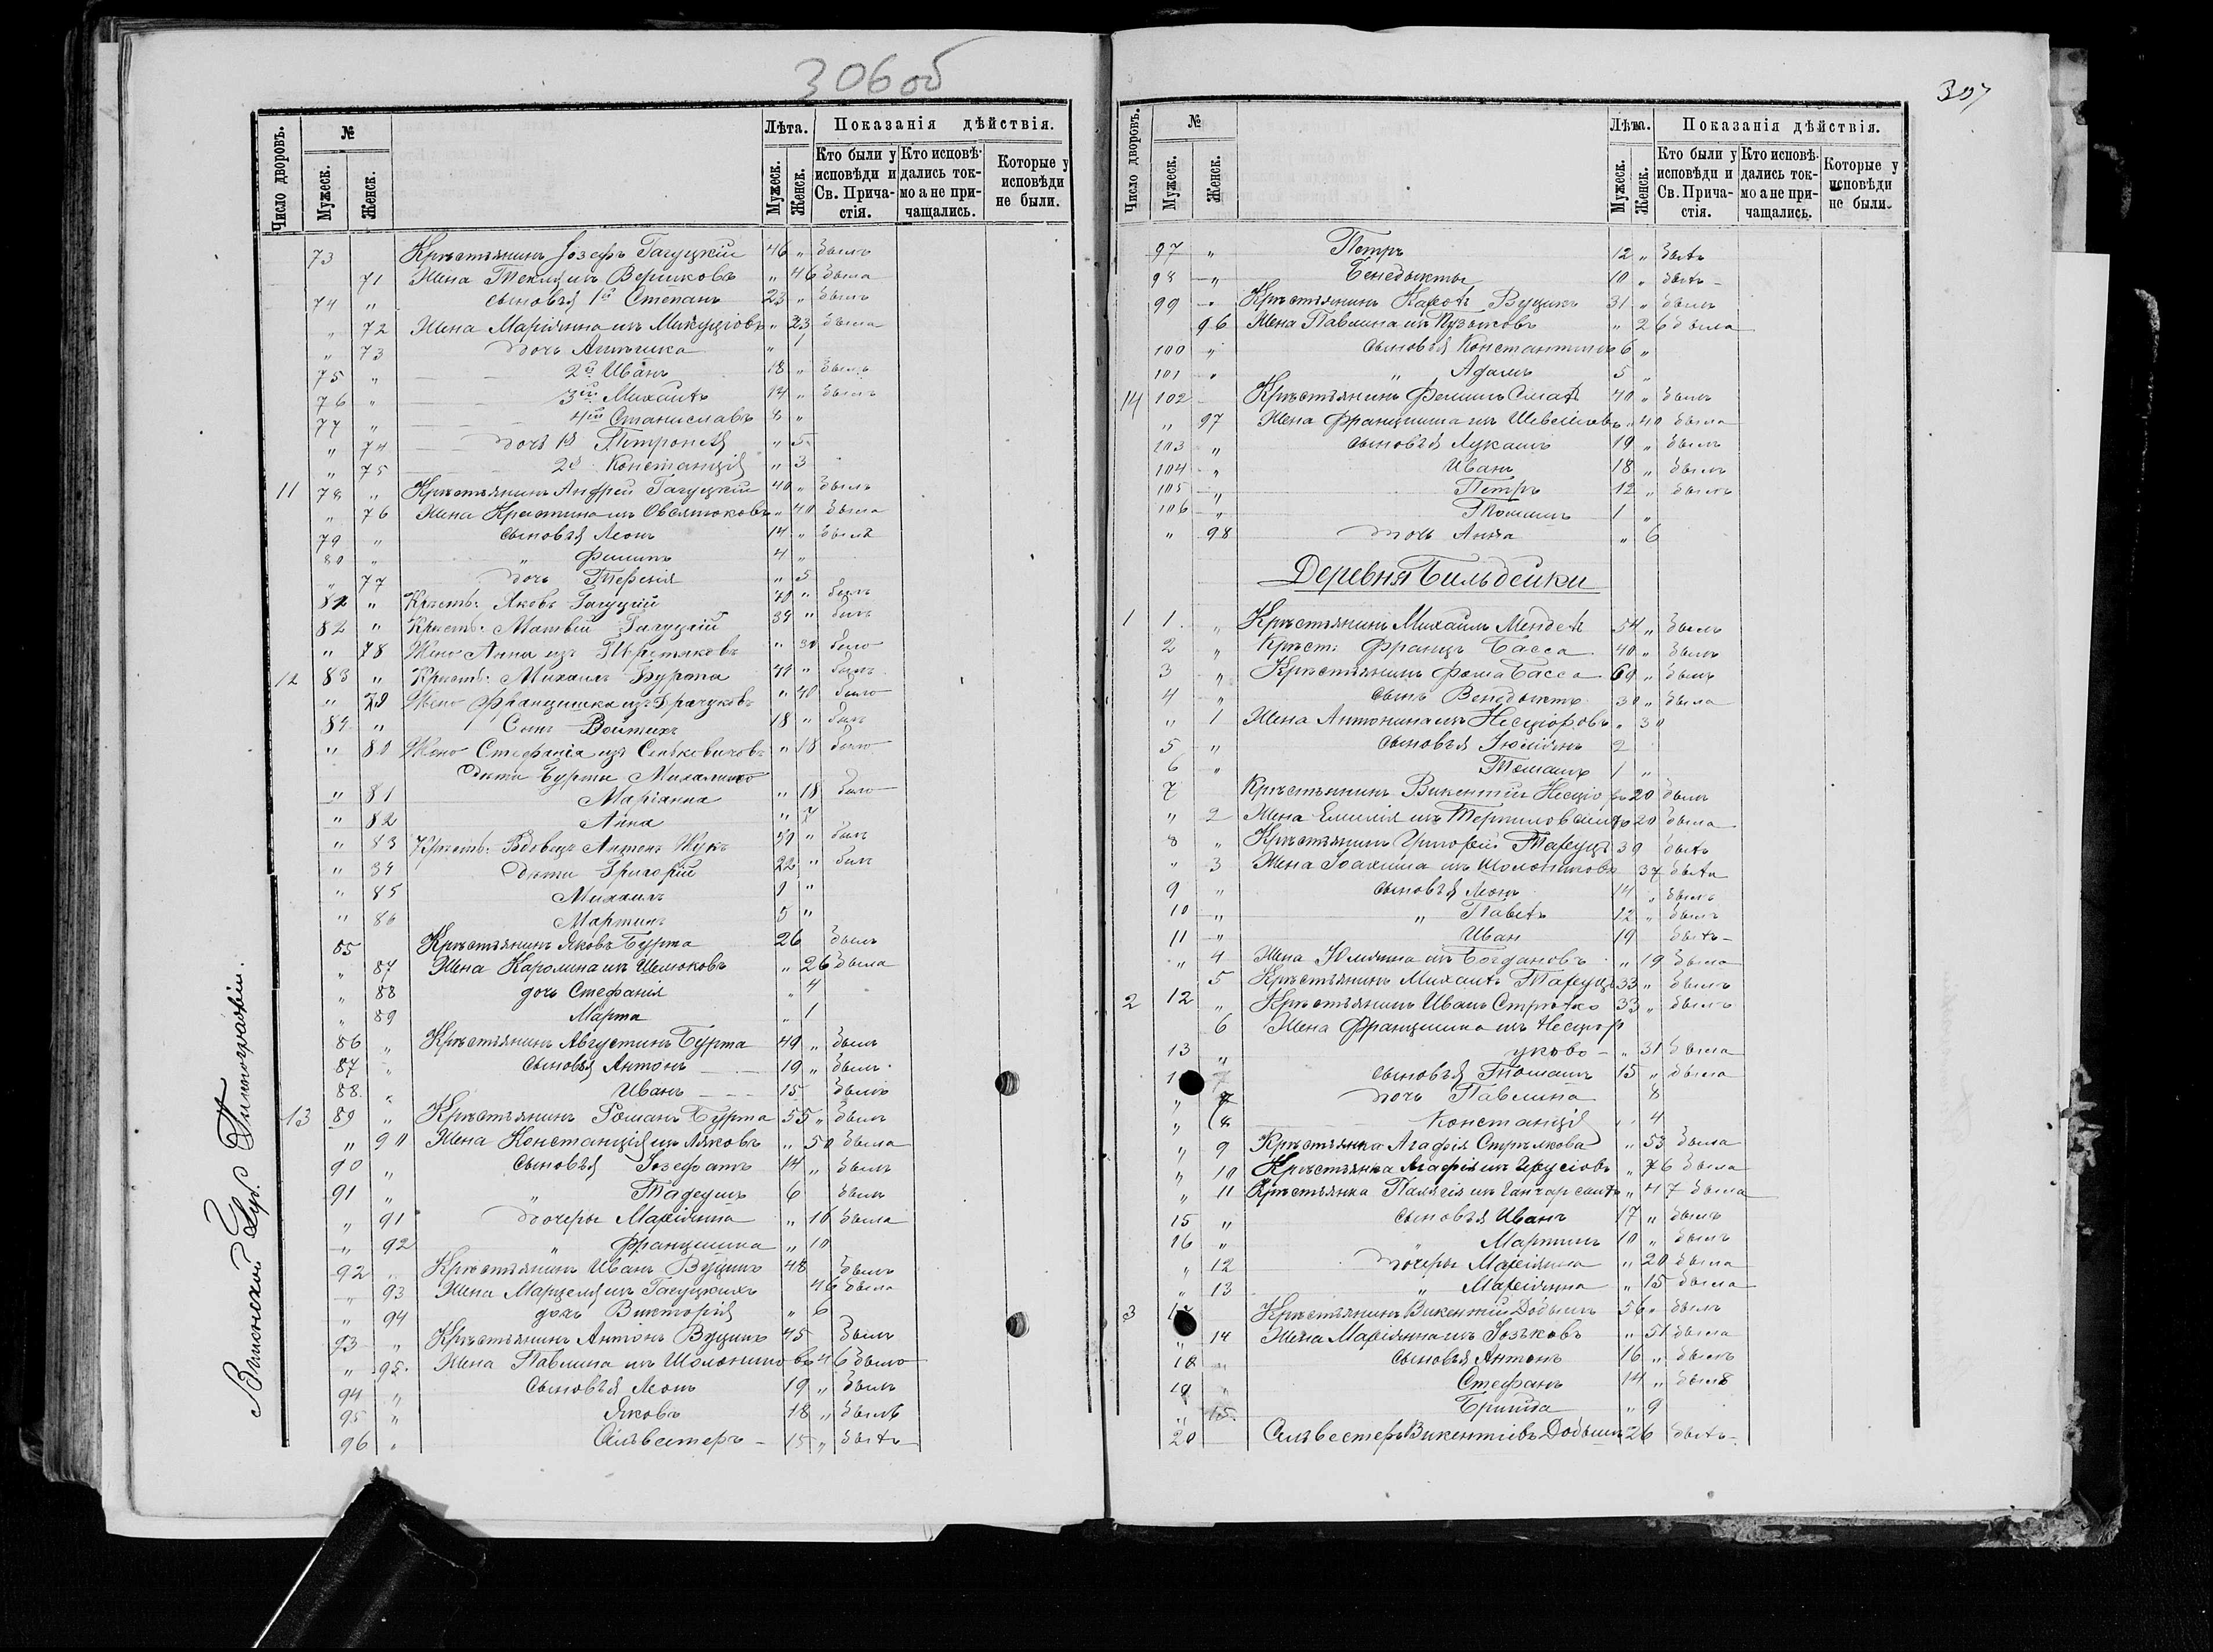 306об
Число дворовъ. № Лѣта. Показанія дѣйствія.
Мужеск. Женск. Мужеск. Женск. Кто были у исповѣди и Св. Причастія. Кто исповѣдались токмо а не причащались. Которые у исповѣди не были.
73 Крестьянинъ Іозефъ Гагуцкій 46 " былъ
71 Жена Текля изъ Вершковъ " 46 была
74 " сыновья 1й Степанъ 23 " былъ
" 72 Жена Маріянна изъ Микуціовъ " 23 была
" 73 дочь " 1
75 " 2й Иванъ 18 " былъ
76 " 3й Михаилъ 14 " былъ
77 " 4й Станиславъ 8 "
" 74 дочь 1я Петронеля " 5
" 75 2я Констанція " 3
11 78 " Крестьянинъ Андрей Гагуцкій 40 " былъ
" 76 Жена Кристина изъ Овсянюковъ " 40 была
79 " сыновья Леонъ 14 " былъ
80 " Филипъ 4 "
" 77 дочь Терезія " 5
81 " Крестьъ: Яковъ Гагуцкій 70 " былъ
82 " Крестьъ: Матвѣй Гагуцкій 39 " былъ
" 78 Жена Анна изъ " 30 была
12 83 " Крестьъ: Михаилъ Бурта " былъ
" 79 Жена Францишка изъ " 40 была
84 " Сынъ Войтихъ 18 " былъ
" 80 Жена Стефанія изъ " 18 была
Дѣти Бурты Михалины
" 81 Маріанна " 18 была
" 82 Анна " 7
" 83 Крестьъ: Вдовецъ Антонъ Жукъ " былъ
" 34 Дѣти Григорій 22 " былъ
" 85 Михаилъ 9 "
" 86 Мартинъ 5 "
85 Крестьянинъ Яковъ Бурта 26 былъ
" 87 Жена Каролина изъ Шелюковъ " 26 была
" 88 дочь Стефанія " 4
" 89 Марта " 1
86 " Крестьянинъ Августинъ Бурта 49 " былъ
87 " сыновья Антонъ 19 " былъ
88 " Иванъ 15 былъ
13 89 " Крестьянинъ Романъ Бурта 55 " былъ
" 90 Жена Констанція изъ Ляковъ " 50 была
90 " сыновья Іозефатъ 14 " былъ
91 " " Тадеушъ 6 былъ
" 91 дочери Маріянна " 16 была
" 92 " Францишка " 10
92 " Крестьянинъ Иванъ Вуцинъ 48 былъ
" 93 Жена Марцеля изъ Гагуцкихъ 46 была
" 94 дочь Викторія " 6
93 " Крестьянинъ Антонъ Вуцинъ 45 былъ
" 95 Жена Павлина изъ Шолониковъ 46 была
94 " сыновья Леонъ 19 " былъ
95 " Яковъ 18 " былъ
96 " Сильвестеръ 15 " былъ
Виленской Губ. Типографіи.
307
Число дворовъ. № Лѣта. Показанія дѣйствія.
Мужеск. Женск. Мужеск. Женск. Кто были у исповѣди и Св. Причастія. Кто исповѣдались токмо а не причащались. Которые у исповѣди не были.
97 " Петръ 12 " былъ
98 " Бенедыктъ 10 " былъ
99 " Крестьянинъ Кароль Вуцинъ 31 " былъ
96 Жена Павлина изъ Пузыковъ " 26 была
100 " сыновья Константинъ 6 "
101 " " Адамъ 5 "
14 102 Крестьянинъ 40 " былъ
" 97 Жена Францишка изъ Шевелевъ " 40 была
103 " сыновья Лукашъ 19 " былъ
104 " Иванъ 18 " былъ
105 " Петръ 12 " былъ
106 " Томашъ 1 "
" 98 дочь Анна " 6
Деревня Бильдейки
1 1 " Крестьянинъ Михаилъ Мендель 54 " былъ
2 " Крест: Францъ Басса 40 " былъ
3 " Крестьянинъ Фома Басса 69 " былъ
4 " сынъ Венедыктъ 30 " была
" 1 Жена Антонина изъ Несціоровъ " 30
5 " сыновья Юліянъ 2
6 " Томашъ 1 "
7 Крестьянинъ Викентій Несціоръ 20 былъ
" 2 Жена Емилія изъ 20 была
8 " Крестьянинъ Григорій 39 былъ
" 3 Жена Іоахима изъ Шолониковъ 37 была
9 " сыновья Леонъ 14 " былъ
10 " " Павелъ 12 " былъ
11 " Иван 19 былъ
" 4 Жена Юлиянна изъ Богдановъ " 19 была
5 Крестьянинъ Михаилъ 33 " былъ
2 12 " Крестьянинъ Иванъ 33 " былъ
6 Жена Францишка изъ Несціор
13 " уково " 31 была
1 7 сыновья Томашъ 15 " была
" 7 дочь Павлина 8
" 8 Констанція " 4
" 9 Крестьянка Агафія Стрѣлкова " 53 была
" 10 Крестьянка Агафія изъ " 76 была
" 11 Крестьянка " 47 была
15 " сыновья Иванъ 17 " былъ
16 " " Мартинъ 10 " былъ
" 12 дочери Маріянна " 20 была
" 13 " Маріянна " 15 была
3 Крестьянинъ Викентій Додынъ 56 " былъ
" 14 Жена Маріянна изъ Зозьковъ " 51 была
18 " сыновья Антонъ 16 " былъ
19 " Стефанъ 14 " былъ
" 15 Бригида " 9
20 Сильвестеръ Викентіевъ Додынъ 26 былъ